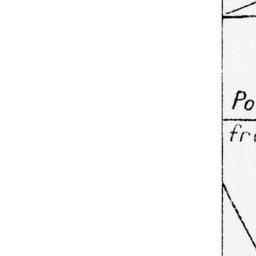 Po
fro